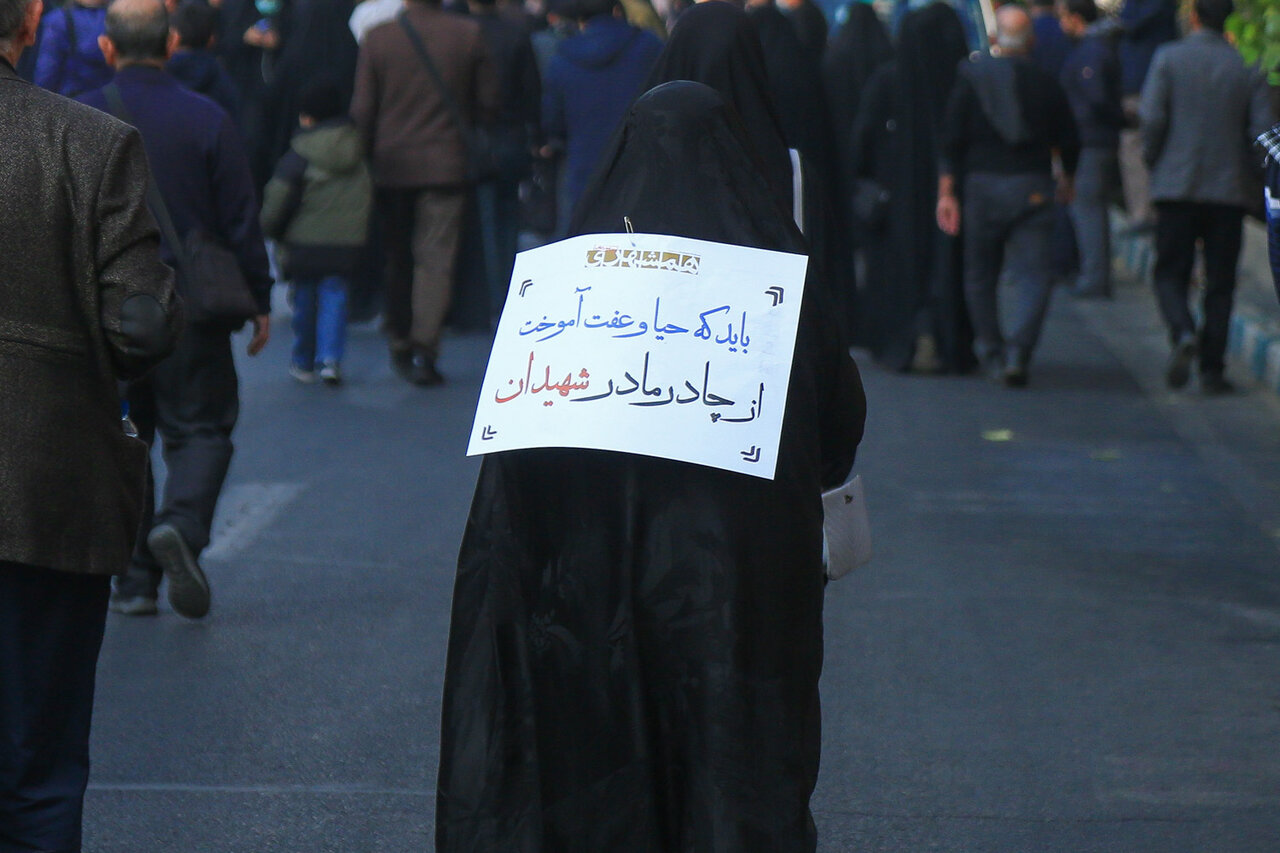 همشهری
باید که حیا و عفت آموخت
از چادر مادر شهیدان